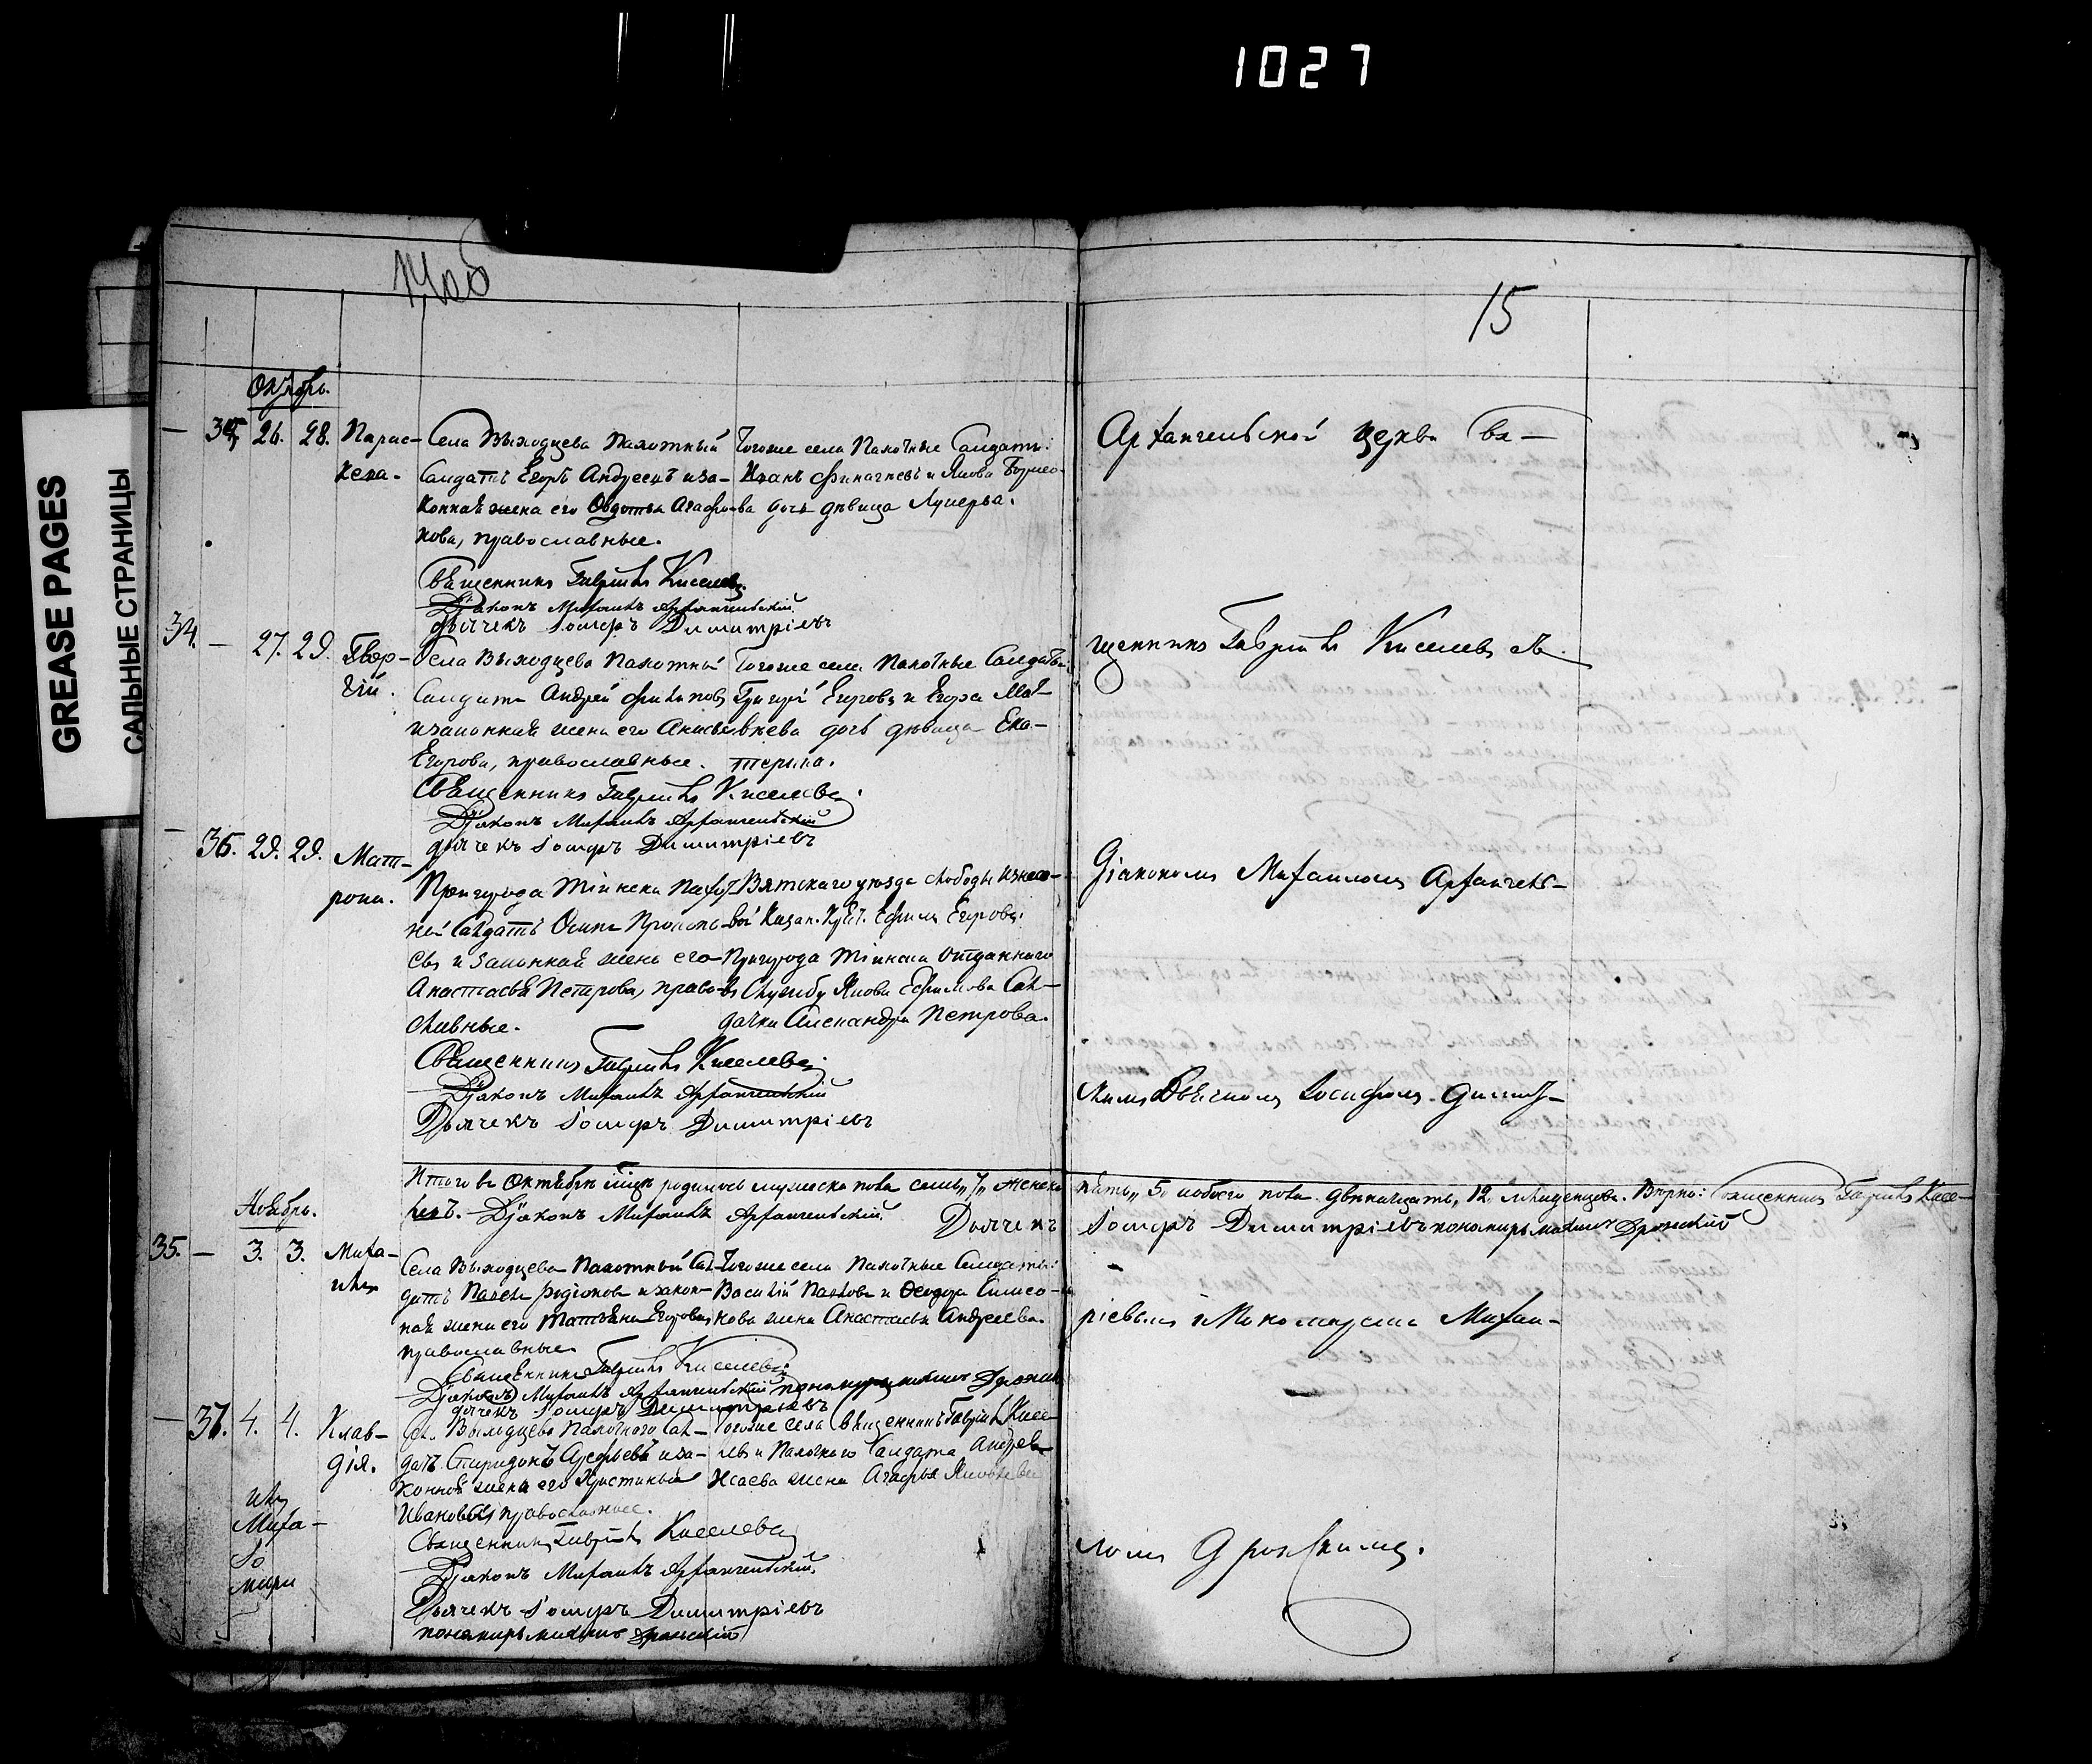 1027
GREASE PAGES
САЛЬНЫЕ СТРАНИЦЫ
14 об
15
Октябрь.
— 35. 26. 28. Парас-
кева.
Села Выходцева Пахотный
Солдатъ Егоръ Андреевъ и за-
конная жена его Овдотья Агафо-
нова, православные.
Тогоже села Пахотные Солдаты:
Иванъ и Якова
ва дочь девица Лукерья.
Священникъ Гавріилъ Киселевъ.
Діаконъ Михаилъ Архангельскій
Дьячекъ Іосифъ Димитріевъ
34. — 27. 29. Геор-
гій.
Села Выходцева Пахотный
Солдатъ Андрей Филиповъ
и законная жена его
Егорова, православные.
Тогоже села Пахотные Солдаты:
Григорій Егоровъ и Егора Мат-
вѣева дочь девица Ека-
терина.
Священникъ Гавріилъ Киселевъ.
Діаконъ Михаилъ Архангельскій
Дьячекъ Іосифъ Димитріевъ
— 36. 29. 29. Мат-
рона.
Пригорода Тіинска Пахот-
ной Солдатъ Осипъ
и законная жена его
Анастасья Петрова, право-
славные.
Вятскаго уезда слободы
вой Казан. Ефимъ Егоровъ.
Пригорода Тіинска отданнаго
въ службу Якова Ефимова Сол-
датка Александра Петрова.
Священникъ Гавріилъ Киселевъ
Діаконъ Михаилъ Архангельскій
Дьячекъ Іосифъ Димитріевъ
Итого въ Октябрѣ мцѣ родилось мужеска пола семь„ 7„ женска
пять„ 5„ а обоего пола двенатцать„ 12„ младенцевъ. Верно: Священникъ Гавріилъ Кисе-
левъ. Діаконъ Михаилъ Архангельскій. Дьячекъ
Іосифъ Димитріевъ пономарь Михаилъ Дронскій
Ноябрь.
35. — 3. 3. Миха-
илъ
Села Выходцева Пахотный Сол-
датъ Павелъ Родіоновъ и закон-
ная жена его Татьяна Егорова,
православные.
Тогоже села Пахотные Солдаты:
Василій Павловъ и Ѳедора Симео-
нова жена Анастасья Андреева.
Священникъ Гавріилъ Киселевъ
Діаконъ Михаилъ Архангельскій пономарь Михаилъ
дьячекъ Іосифъ Димитріевъ
— 37. 4. 4. Клав-
дія.
С. Выходцева Пахотного Сол-
датъ Спиридонъ и за-
конная жена его Христинья
Иванова, православные.
Тогоже села Священникъ Гавріилъ Кисе-
левъ и Пахотного Солдата Андрея
Исаева жена Агафья Яковлева
Священникъ Гавріилъ Киселевъ
Діаконъ Михаилъ Архангельскій.
Дьячекъ Іосифъ Димитріевъ
пономарь Михаилъ Дронскій
илъ
Миха-
Архангельской церкви Свя-
щенникъ Гавріилъ Киселевъ съ
Діакономъ Михаиломъ Архангель-
скимъ Дьячкомъ Іосифомъ Димит-
ріевымъ и Пономаремъ Михаи-
ломъ Дронскимъ.